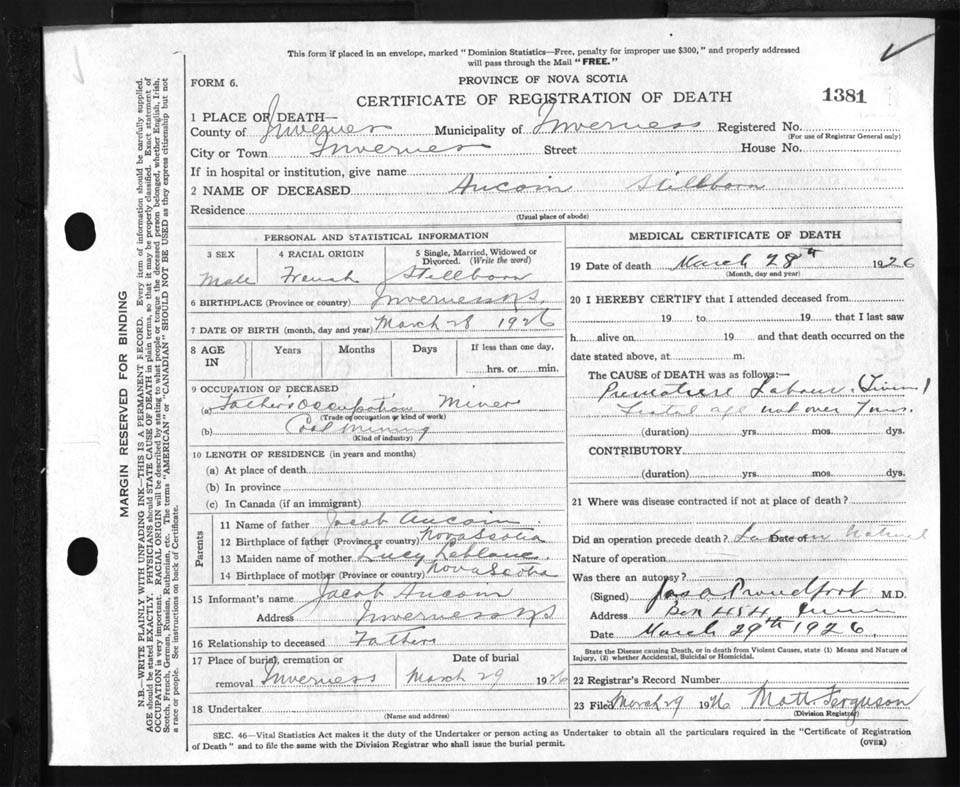 This form if placed in an envelope, marked "Dominion Statistics—Free, penalty for improper use $300," and properly addressed
will pass through the Mail "FREE."
FORM 6.
PROVINCE OF NOVA SCOTIA
CERTIFICATE OF REGISTRATION OF DEATH
1381
1 PLACE OF DEATH—
County of Inverness Municipality of Inverness Registered No.
(For use of Registrar General only)
City or Town Inverness Street House No.
If in hospital or institution, give name
2 NAME OF DECEASED Aucoin Stillborn
Residence
(Usual place of abode)
PERSONAL AND STATISTICAL INFORMATION
3 SEX 4 RACIAL ORIGIN 5 Single, Married, Widowed or
Divorced. (Write the word)
Male French Stillborn
6 BIRTHPLACE (Province or country) Inverness N.S.
7 DATE OF BIRTH (month, day and year) March 28 1926
8 AGE IN Years Months Days If less than one day,
hrs. or min.
9 OCCUPATION OF DECEASED
(a) Father's Occupation Miner
(Trade or occupation or kind of work)
(b) Coal Mining
(Kind of industry)
10 LENGTH OF RESIDENCE (in years and months)
(a) At place of death
(b) In province
(c) In Canada (if an immigrant)
Parents
11 Name of father Jacob Aucoin
12 Birthplace of father (Province or country) Nova Scotia
13 Maiden name of mother Lucy Leblanc.
14 Birthplace of mother (Province or country) Nova Scotia
15 Informant's name Jacob Aucoin
Address Inverness N.S.
16 Relationship to deceased Father
17 Place of burial, cremation or Date of burial
removal Inverness March 29 1926
18 Undertaker
(Name and address)
MEDICAL CERTIFICATE OF DEATH
19 Date of death March 28th 1926
(Month, day and year)
20 I HEREBY CERTIFY that I attended deceased from
19 to 19 that I last saw
h alive on 19 and that death occurred on the
date stated above, at m.
The CAUSE of DEATH was as follows:—
Premature Labour. (Twins)
Foetal age not over 7 mos.
(duration) yrs. mos. dys.
CONTRIBUTORY
(duration) yrs. mos. dys.
21 Where was disease contracted if not at place of death?
Did an operation precede death? Date of Natural
Nature of operation
Was there an autopsy?
(Signed) Jas A Proudfoot M.D.
Address Box 454
Date March 29th 1926.
State the Disease causing Death, or in death from Violent Causes, state (1) Means and Nature of
Injury, (2) whether Accidental, Suicidal or Homicidal.
22 Registrar's Record Number
23 Filed March 29 1926 Matt. Ferguson
(Division Registrar)
SEC. 46—Vital Statistics Act makes it the duty of the Undertaker or person acting as Undertaker to obtain all the particulars required in the "Certificate of Registration
of Death" and to file the same with the Division Registrar who shall issue the burial permit.
(OVER)
MARGIN RESERVED FOR BINDING
N.B.—WRITE PLAINLY WITH UNFADING INK—THIS IS A PERMANENT RECORD. Every item of information should be carefully supplied.
AGE should be stated EXACTLY. PHYSICIANS should STATE CAUSE OF DEATH in plain terms, so that it may be properly classified. Exact statement of
OCCUPATION is very important. RACIAL ORIGIN will be described by stating to what people or tongue the deceased person belonged, whether English, Irish,
Scotch, French, German, Russian, Ruthenian, etc. The terms "AMERICAN" or "CANADIAN" SHOULD NOT BE USED as they express citizenship but not
a race or people. See instructions on back of Certificate.